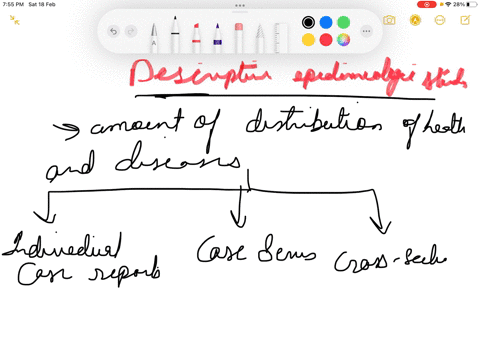 7:55 PM Sat 18 Feb
28%
Descriptive epidemiologic
→ amount of distribution of health
and diseases
Individual Case Series Cross-sec
Case reports